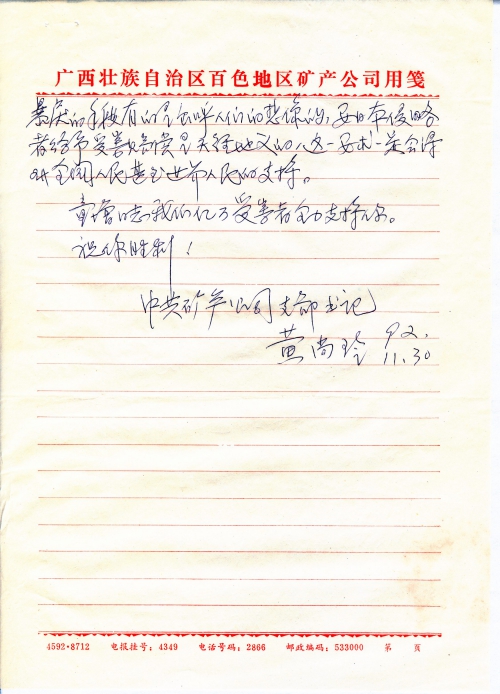 广西壮族自治区百色地区矿产公司用笺
暴戾的手段有的是出乎人们的想像的，要日本侵略
者给予受害赔偿是天经地义的，这一要求一定会得
到全国人民甚至世界人民的支持。
童增同志我们亿万受害者全力支持你。
祝你胜利！
中共矿产公司支部书记
黄尚玲 92.
11.30
4592·8712 电报挂号：4349 电话号码：2866 邮政编码：533000 第 页